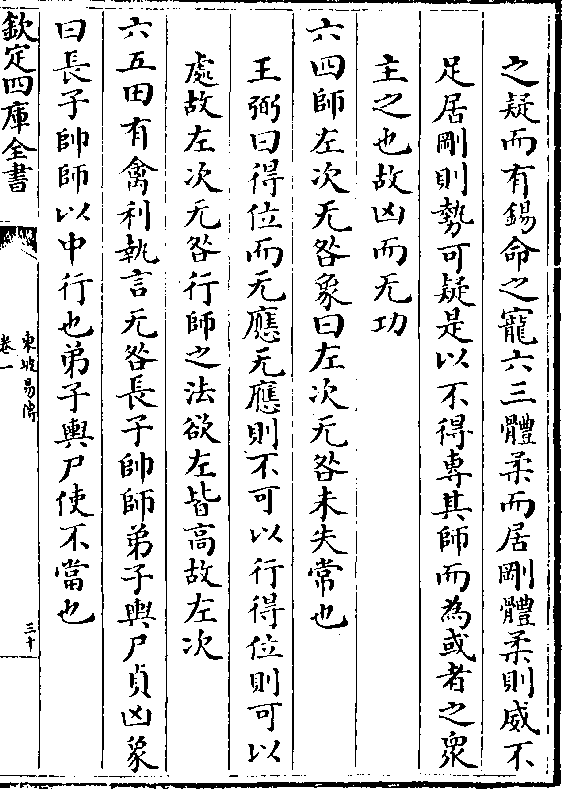 之疑而有錫命之寵六三體柔而居剛體柔則威不
足居剛則勢可疑是以不得專其師而為或者之衆
主之也故凶而无功
六四師左次无咎象曰左次无咎未失常也
王弼曰得位而无應无應則不可以行得位則可以
處故左次无咎行師之法欲左皆高故左次
六五田有禽利執言无咎長子帥師弟子輿尸貞凶象
曰長子帥師以中行也弟子輿尸使不當也
欽定四庫全書
東坡易傳
卷一
三十